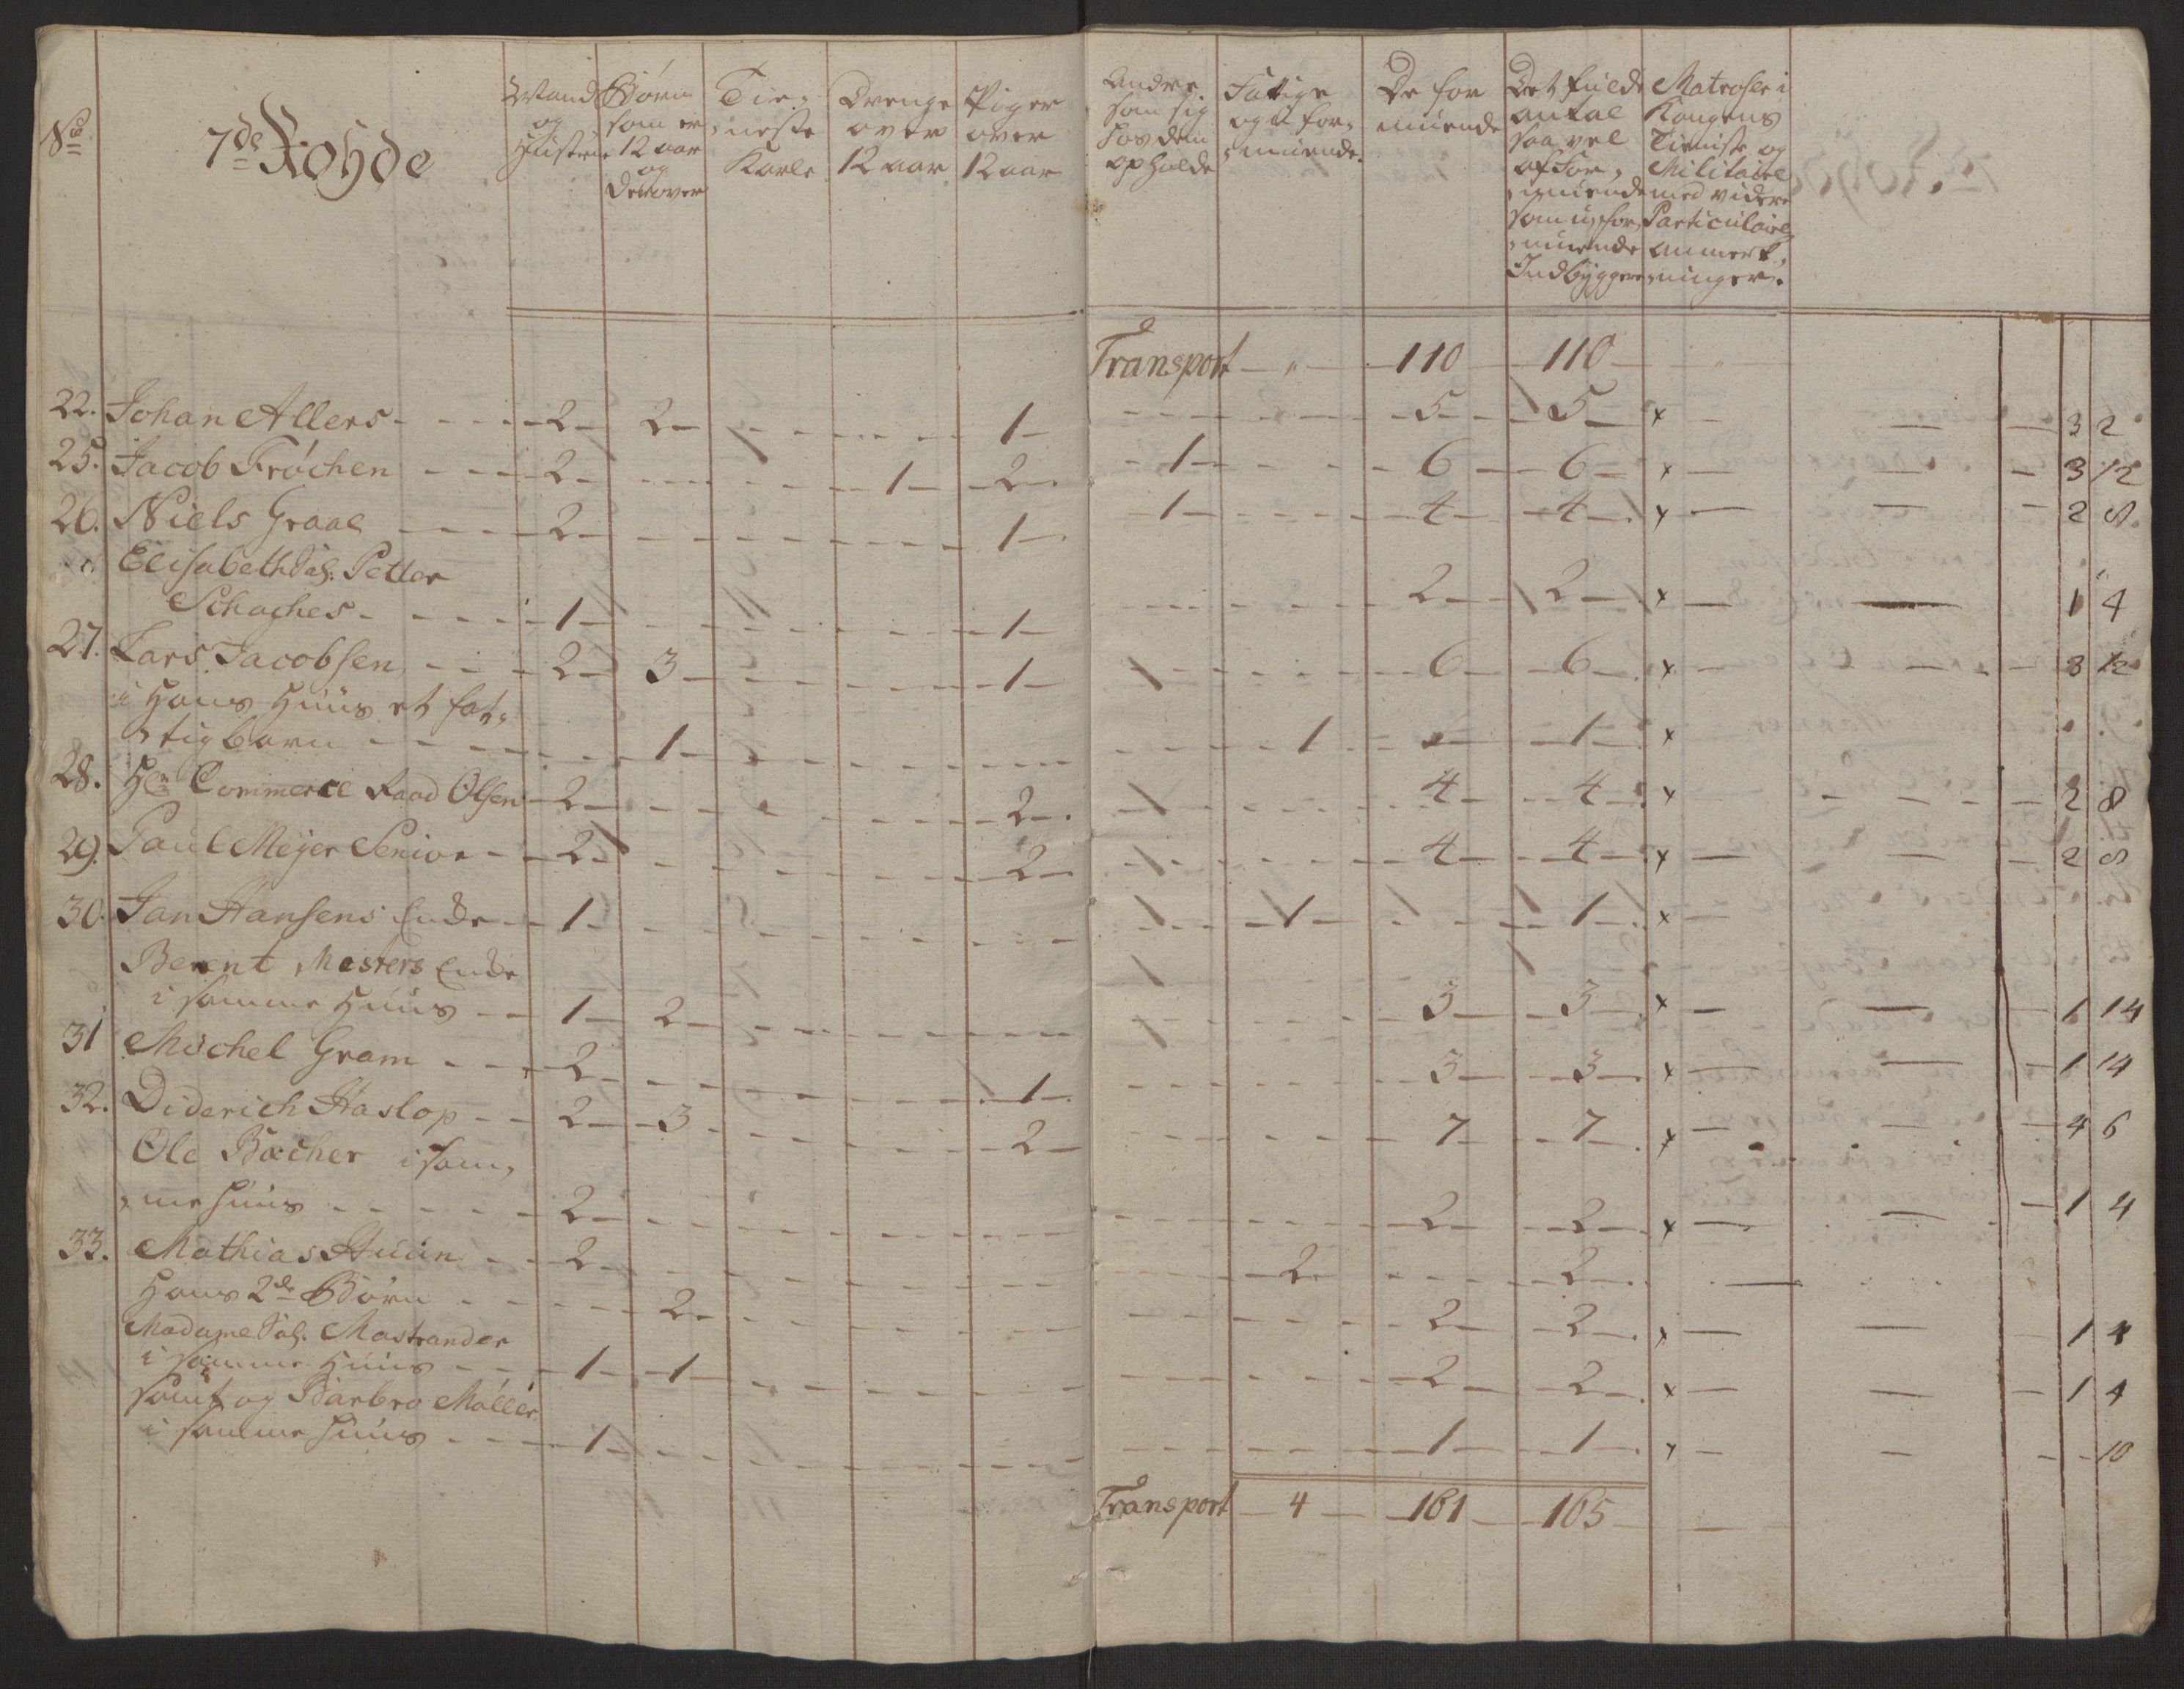 No
7de Rohde
Mand
og
Hustrue
Børn
som er
12 aar
og
derover
Tie-
neste
Karle
Drenge
over
12 aar
Piger
over
12 aar
Andre
som sig
hos dem
opholde
Fattige
og u for-
muende.
De for
muende
Det fulde
antal
saa vel
af For-
muende
som u for-
muende
Indbyggere
Matroser i
Kongens
Tieniste og
Militaire
med videre
Particulaire
anmerk-
ninger.
Transport — " — 110 — 110 — "
22. Johan Allers - 2 - 2 - 1 - 5 - 5 - x - 3 2
25. Jacob Frøchen - 2 - 1 - 2 - 1 - 6 - 6 - x - 3 12
26. Niels Graae - 2 - 1 - 1 - 4 - 4 - x - 2 8
Elisabeth Sal. Petter
Schaches - 1 - 1 - 2 - 2 - x - 1 4
27. Lars Jacobsen - 2 - 3 - 1 - 6 - 6 - x - 3 12
i Hans Huus et fat-
tig barn - 1 - 1 - 1 - x
28. Hr Commerce Raad Olsen - 2 - 2 - 4 - 4 - x - 2 8
29. Paul Meyer Senior - 2 - 2 - 4 - 4 - x - 2 8
30. Jan Hansens Encke - 1 - 1 - 1 - x
Berent Mesters Encke
i samme Huus - 1 - 2 - 3 - 3 - x - 1 14
31 Michel Gram - 2 - 1 - 3 - 3 - x - 1 14
32. Diderich Haslop - 2 - 3 - 2 - 7 - 7 - x - 4 6
Ole Bøcher i sam-
me Huus - 2 - 2 - 2 - x - 1 4
33. Mathias Huun - 2 - 2 - 2 -
Hans 2de Børn - 2 - 2 - 2 - x - 1 4
Madame Sal. Mastrander
i samme Huus - 1 - 1 - 2 - 2 - x - 1 4
samt og Barbro Møller
i samme Huus - 1 - 1 - 1 - x - 10
Transport — 4 — 161 — 165 —